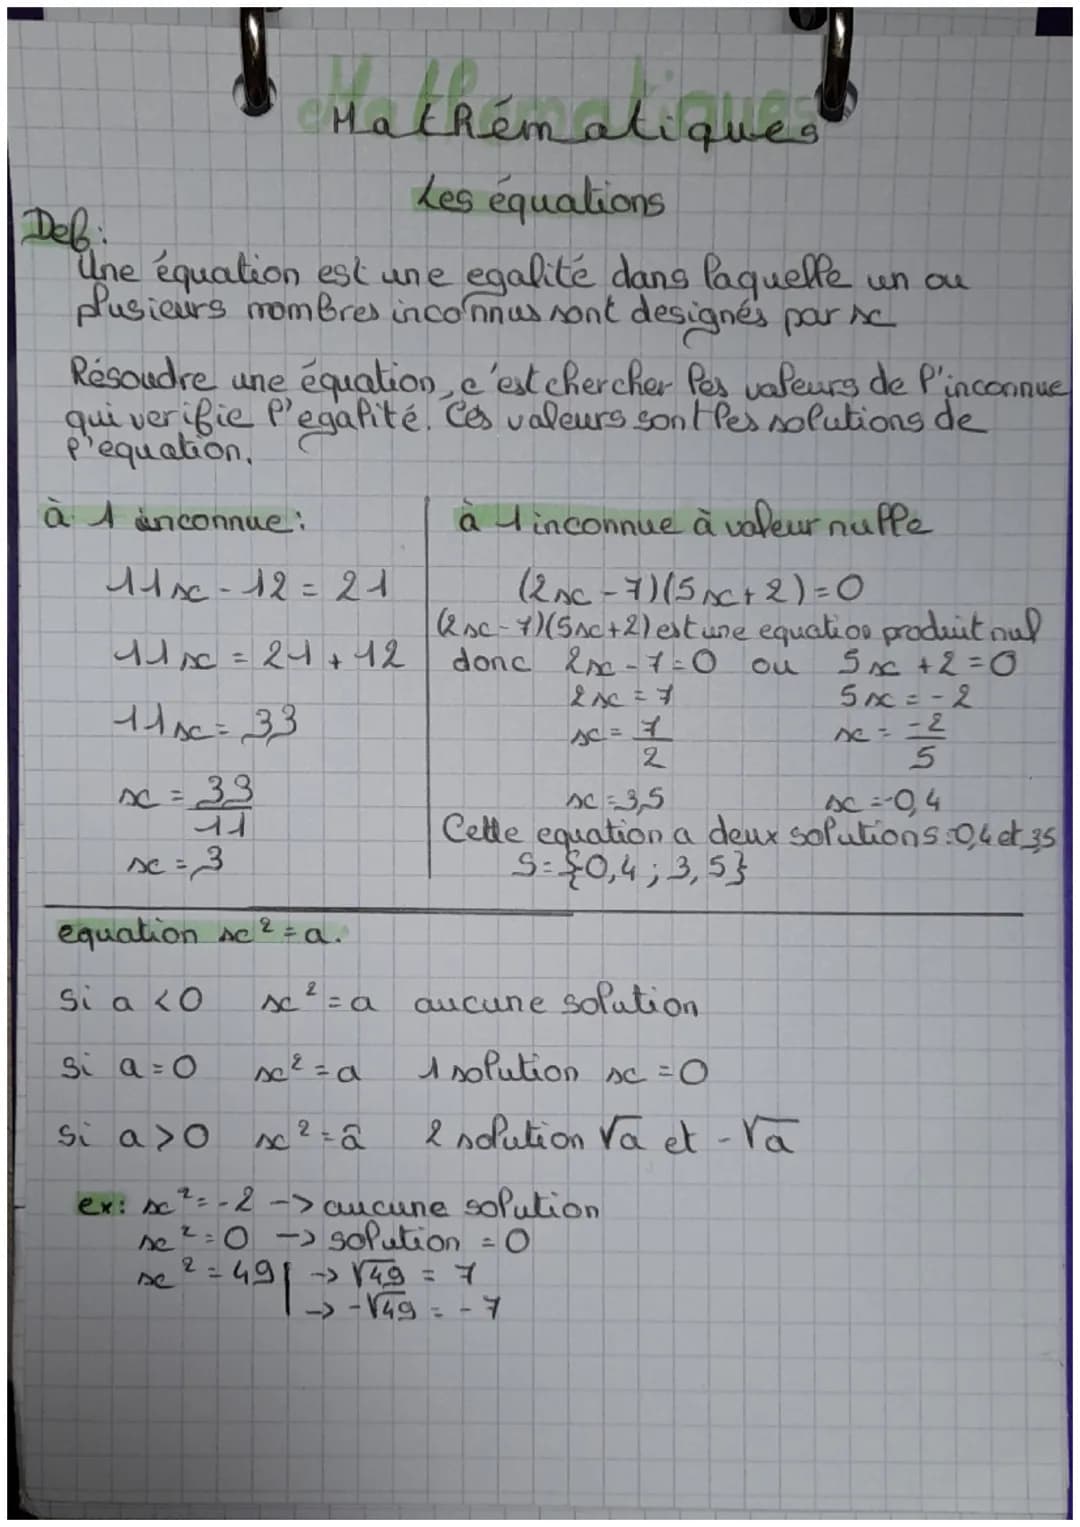 Mathématiques
Les équations
Def:
Une équation est une egalité dans laquelle un ou
plusieurs nombres inconnus sont designés par x
Résoudre une équation, c'est chercher les valeurs de l'inconnue
qui verifie l'egalité. Ces valeurs sont les solutions de
l'equation.
à 1 inconnue:
11x - 12 = 21
11x = 21 + 12
11x = 33
x = 33/11
x = 3
à 1 inconnue à valeur nulle
(2x - 7)(5x + 2) = 0
(2x - 7)(5x + 2) est une equation produit nul
donc 2x - 7 = 0 ou 5x + 2 = 0
2x = 7 5x = -2
x = 7/2 x = -2/5
x = 3,5 x = -0,4
Cette equation a deux solutions: 0,4 et 3,5
S = {0,4 ; 3,5}
equation x² = a.
Si a < 0 x² = a aucune solution
Si a = 0 x² = a 1 solution x = 0
Si a > 0 x² = a 2 solution √a et -√a
ex: x² = -2 -> aucune solution
x² = 0 -> solution = 0
x² = 49 -> √49 = 7
-> -√49 = -7